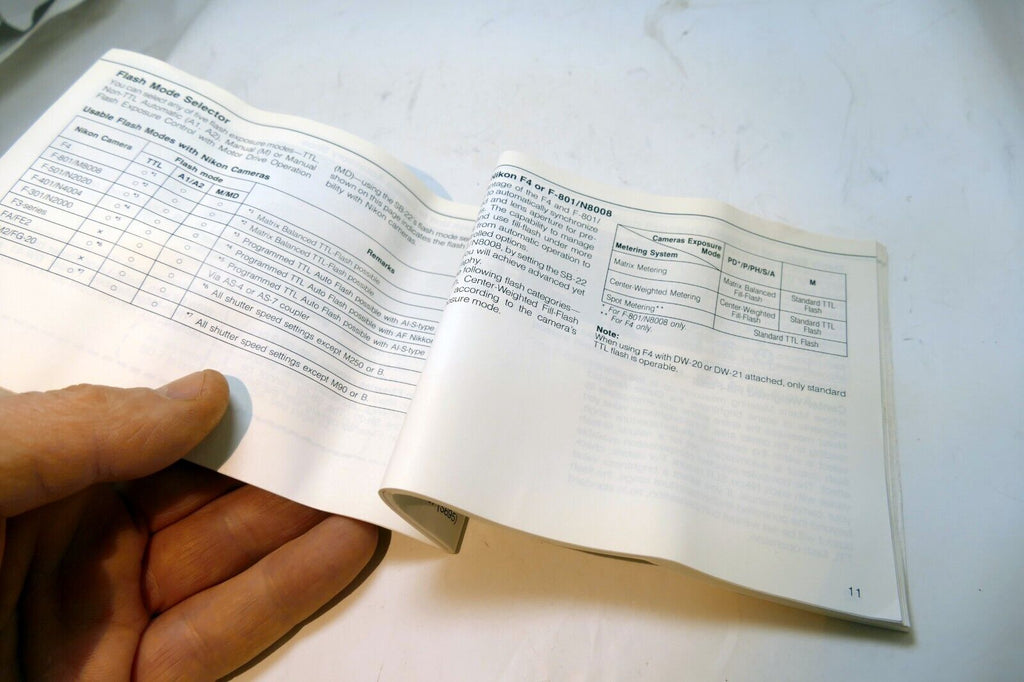 Flash Mode Selector
You can select any of five flash exposure modes—TTL,
Non-TTL Automatic (A1, A2), Manual (M) or Manual
Flash Exposure Control with Motor Drive Operation
(MD)—using the SB-22's flash mode se
shown on this page indicates the flash
bility with Nikon cameras.
Usable Flash Modes with Nikon Cameras
Nikon Camera Flash mode Remarks
TTL A1/A2 M/MD
F4
F-801/N8008
F-501/N2020
F-401/N4004
F-301/N2000
F3-series
FA/FE2
M2/FG-20
*1 Matrix Balanced TTL-Flash possible.
*2 Matrix Balanced TTL-Flash possible.
Programmed TTL Auto Flash possible with AI-S-type
Programmed TTL Auto Flash possible with AF Nikkor
Programmed TTL Auto Flash possible with AI-S-type
Via AS-4 or AS-7 coupler
All shutter speed settings except M250 or B.
*7 All shutter speed settings except M90 or B.
(S695)
Nikon F4 or F-801/N8008
ntage of the F4 and F-801/
o automatically synchronize
and lens aperture for pre-
. The capability to manage
nd use fill-flash under more
from automatic operation to
olled options.
N8008, by setting the SB-22
ou will achieve advanced yet
phy.
following flash categories—
, Center-Weighted Fill-Flash
according to the camera's
sure mode.
Cameras Exposure Mode
Metering System
PD*/P/PH/S/A
M
Matrix Metering
Matrix Balanced Fill-Flash
Standard TTL Flash
Center-Weighted Metering
Center-Weighted Fill-Flash
Standard TTL Flash
Spot Metering**
Standard TTL Flash
* For F-801/N8008 only.
** For F4 only.
Note:
When using F4 with DW-20 or DW-21 attached, only standard
TTL flash is operable.
11